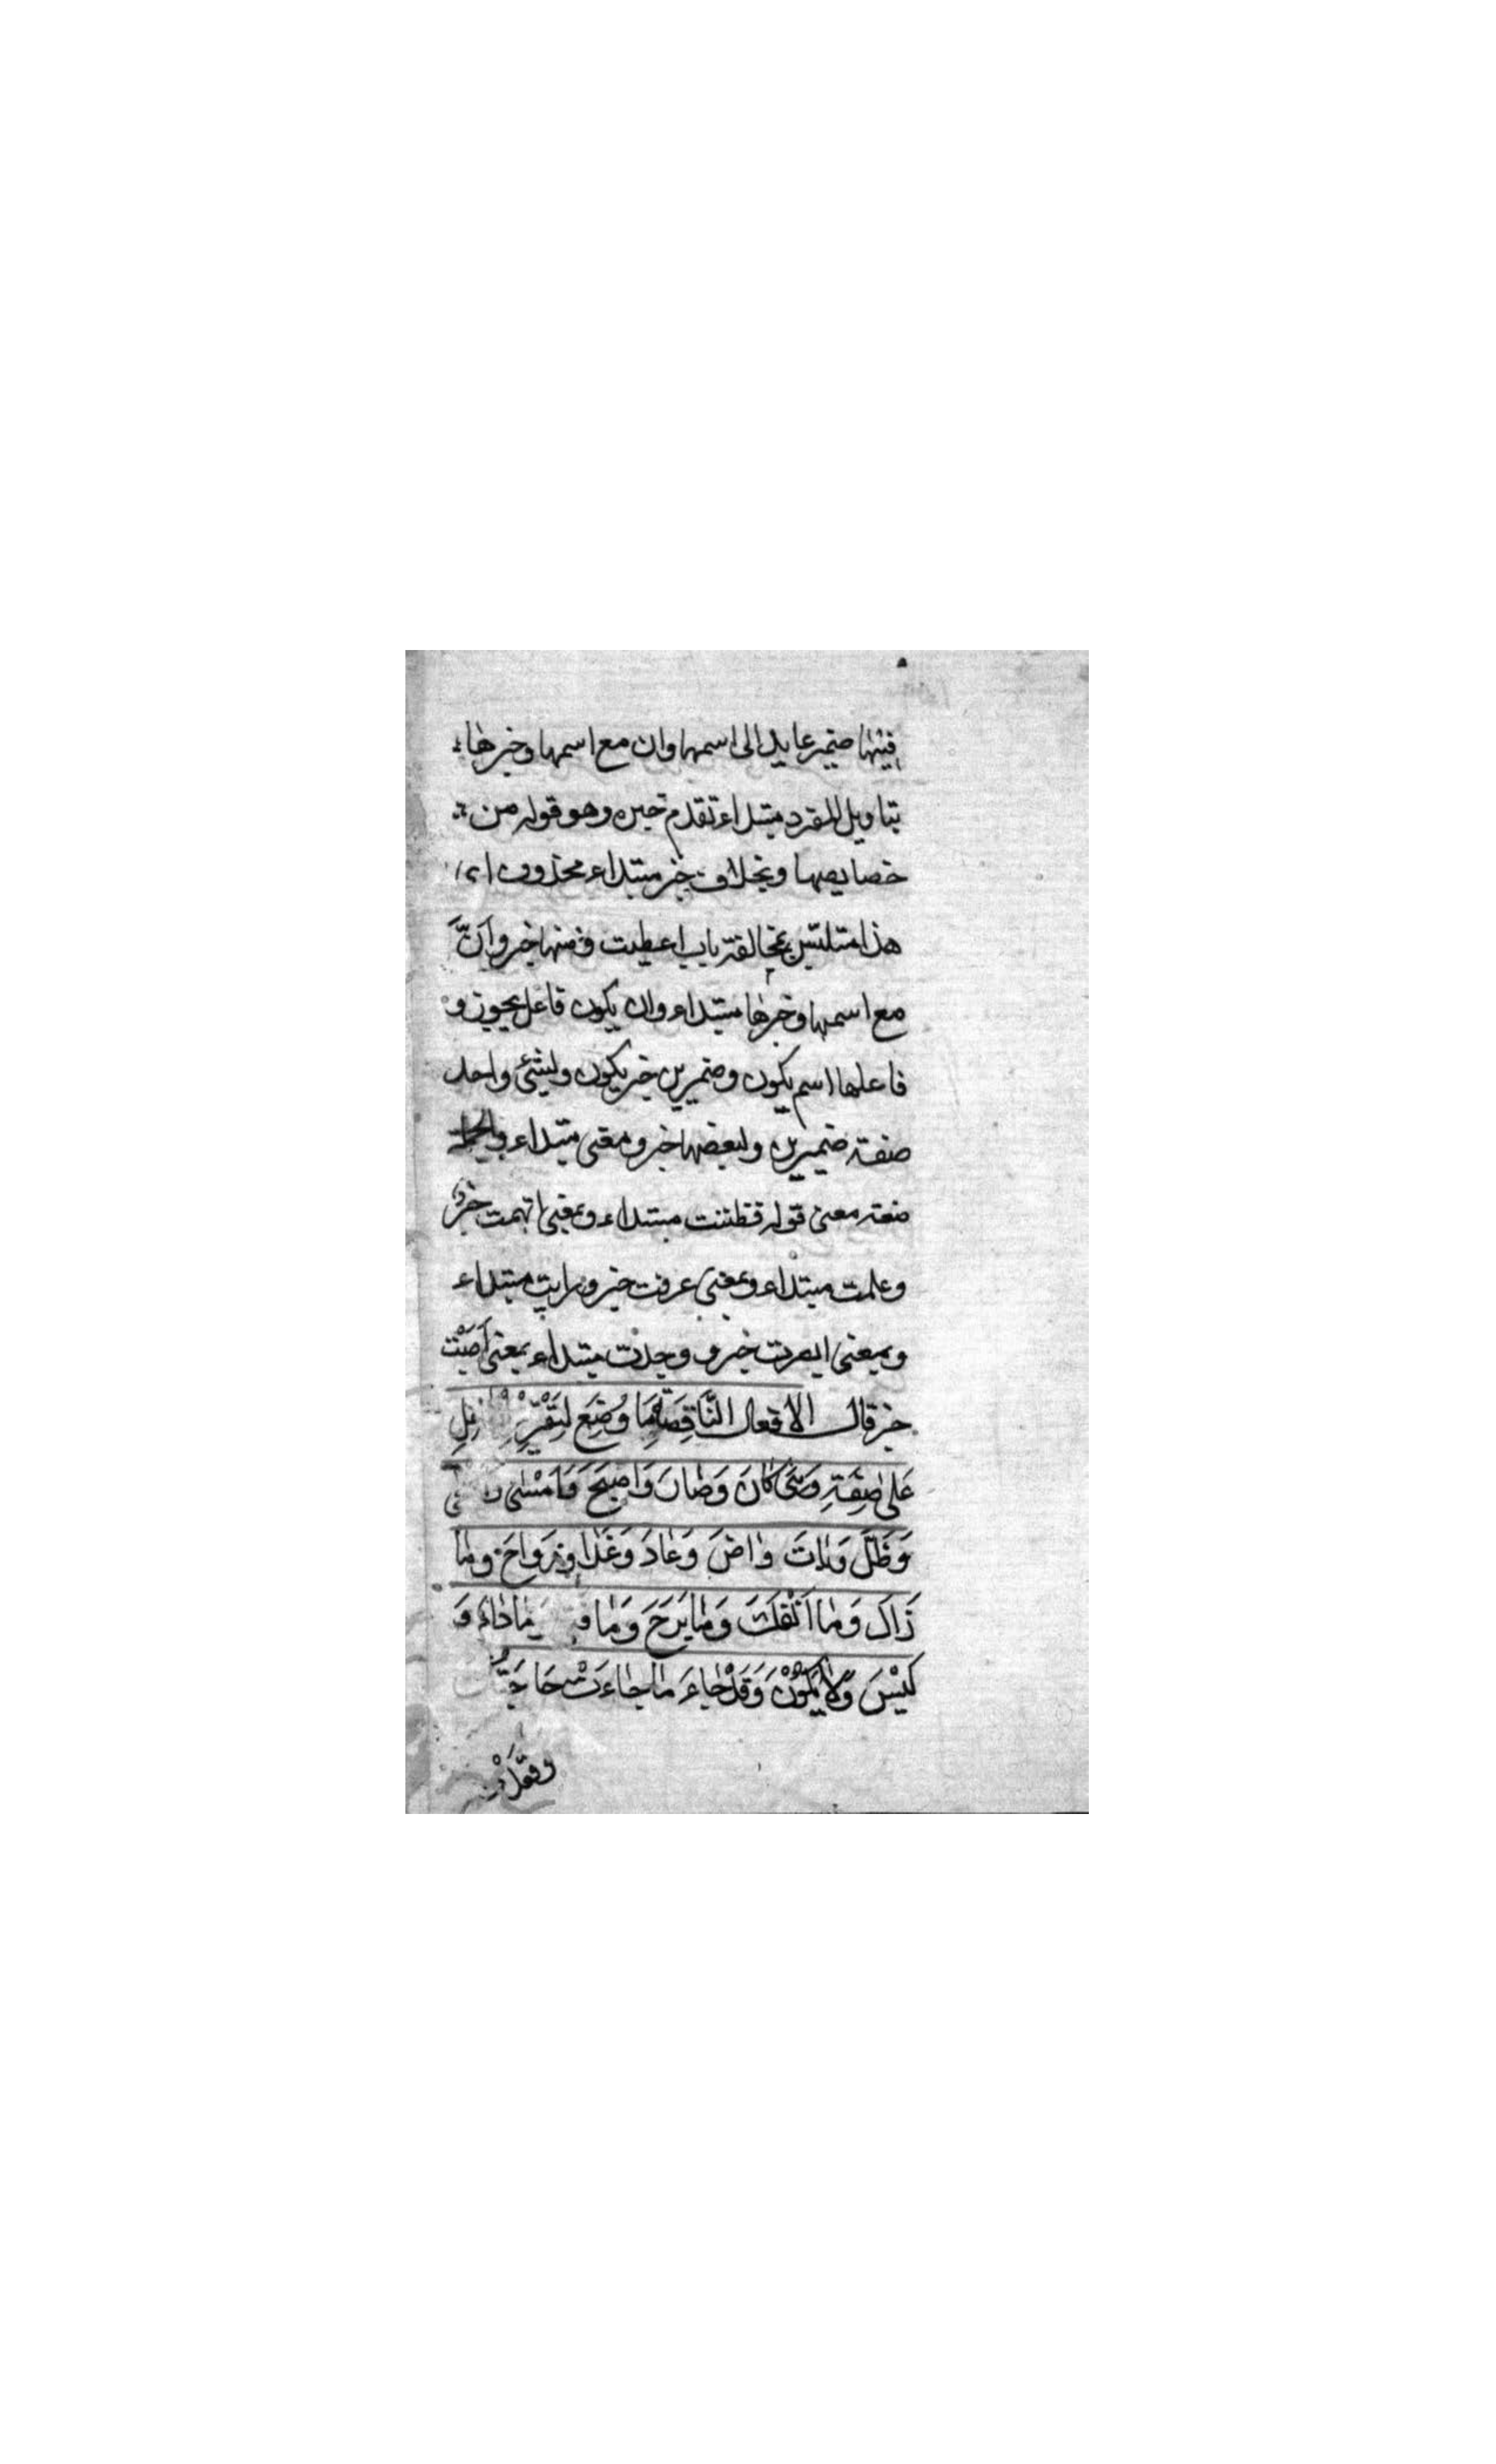 فيها ضمير عايد الى اسمها وان مع اسمها وخبرها
بتاويل المفرد مبتداء تقدم خبره وهو قوله من
خصايصها وبخلاف خبر مبتداء محذوف اى
هذا متلبس بمخالفة باب اعطيت ومنها خبر وانَّ
مع اسمها وخبرها مبتداء وان يكون فاعل يجوز و
فاعلها اسم يكون وضميرين خبر يكون ولشئ واحد
صفة ضميرين ولبعضها خبر ومعنى مبتداء
صفة معنى قوله فظننت مبتداء وبمعنى اتهمت خبر
وعلمت مبتداء وبمعنى عرفت خبر ورايت مبتداء
وبمعنى ابصرت خبر ووجدت مبتداء بمعنى اَصَبْت
خبر قال الافعال النَّاقِصَة مَا وُضِعَ لِتَقْرِيْرِ
عَلى صِفَةٍ وَهِيَ كَانَ وَصَارَ وَاَصْبَحَ وَاَمْسٰى
وَظَلَّ وَبَاتَ وَاٰضَ وَعَادَ وَغَدَا وَرَوَاحَ وما
زَالَ وَمَا اَنْفَكَّ وَمَا بَرَحَ وَمَا مَا دَامَ وَ
لَيْسَ وَلَا يَكُوْنُ وَقَدْ جَاءَ مَا جَاءَتْ حَاجَتُكَ
وقعدت